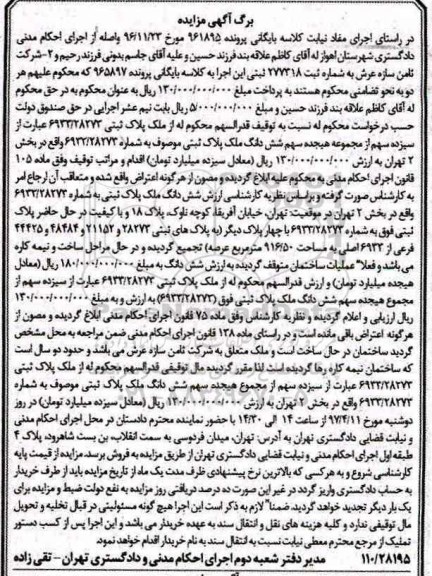 برگ آگهی مزایده
در راستای اجرای مفاد نیابت کلاسه بایگانی پرونده ۹۶۱۸۹۵ مورخ ۹۶/۱۱/۲۳ واصله از اجرای احکام مدنی
دادگستری شهرستان اهواز له آقای کاظم علاقه بند فرزند حسین و علیه آقای جاسم بدونی فرزند رحیم و ۲-شرکت
ثامن سازه عرش به شماره ثبت ۲۷۷۳۱۸ ثبتی این اجرا به کلاسه بایگانی پرونده ۹۶۵۸۹۷ که محکوم علیهم هر
دو به نحو تضامنی محکوم هستند به پرداخت مبلغ ۱۳۰/۰۰۰/۰۰۰/۰۰۰ ریال به عنوان محکوم به در حق محکوم
له آقای کاظم علاقه بند فرزند حسین و مبلغ ۵/۰۰۰/۰۰۰/۰۰۰ ریال بابت نیم عشر اجرایی در حق صندوق دولت
حسب درخواست محکوم له نسبت به توقیف قدرالسهم محکوم له از ملک پلاک ثبتی ۶۹۳۳/۲۸۲۷۳ عبارت از
سیزده سهم از مجموعه هیجده سهم شش دانگ ملک پلاک ثبتی موصوف به شماره ۶۹۳۳/۲۸۲۷۳ واقع در بخش
۲ تهران به ارزش ۱۳۰/۰۰۰/۰۰۰/۰۰۰ ریال (معادل سیزده میلیارد تومان) اقدام و مراتب توقیف وفق ماده ۱۰۵
قانون اجرای احکام مدنی به محکوم علیه ابلاغ گردیده و مصون از هرگونه اعتراض واقع شده و متعاقب آن ارجاع امر
به کارشناس صورت گرفته و براساس نظریه کارشناسی ارزش شش دانگ ملک پلاک ثبتی به شماره ۶۹۳۳/۲۸۲۷۳
واقع در بخش ۲ تهران در موقعیت: تهران، خیابان آفریقا، کوچه تاوک، پلاک ۱۸ و با کیفیت در حال حاضر پلاک
ثبتی فوق به شماره ۶۹۳۳/۲۸۲۷۳ با چهار پلاک دیگر (به پلاک های ثبتی ۲۸۲۷۳ و ۲۱۱۵۲ و ۴۸۴۸۴ و ۴۴۴۲۵
فرعی از ۶۹۳۳ اصلی به مساحت ۹۱۶/۵۰ مترمربع عرصه) تجمیع گردیده و در حال مراحل ساخت و نیمه کاره
می باشد و فعلا" عملیات ساختمان متوقف گردیده به ارزش شش دانگ به مبلغ ۱۸۰/۰۰۰/۰۰۰/۰۰۰ ریال (معادل
هیجده میلیارد تومان) و ارزش قدرالسهم محکوم له از ملک پلاک ثبتی ۶۹۳۳/۲۸۲۷۳ عبارت از سیزده سهم از
مجموع هیجده سهم شش دانگ ملک پلاک ثبتی فوق (۶۹۳۳/۲۸۲۷۳) به ارزش و به مبلغ ۱۳۰/۰۰۰/۰۰۰/۰۰۰
ریال ارزیابی و اعلام گردیده و نظریه کارشناس وفق ماده ۷۵ قانون اجرای احکام مدنی ابلاغ گردیده و مصون از
هرگونه اعتراض باقی مانده است و در راستای ماده ۱۳۸ قانون اجرای احکام مدنی ضمن مراجعه به محل مشخص
گردید ساختمان در حال ساخت است و ملک متعلق به شرکت ثامن سازه عرش می باشد و حدود دو سال است
که ساختمان نیمه کاره رها گردیده است لذا مقرر گردیده مال توقیفی قدرالسهم محکوم له از ملک پلاک ثبتی
۶۹۳۳/۲۸۲۷۳ عبارت از سیزده سهم از مجموع هیجده سهم شش دانگ ملک پلاک ثبتی موصوف به شماره
۶۹۳۳/۲۸۲۷۳ واقع در بخش ۲ تهران به ارزش ۱۳۰/۰۰۰/۰۰۰/۰۰۰ ریال (معادل سیزده میلیارد تومان) در روز
دوشنبه مورخ ۹۷/۴/۱۱ از ساعت ۱۴ الی ۱۴/۳۰ با حضور نماینده محترم دادستان در محل اجرای احکام مدنی
و نیابت قضایی دادگستری تهران به آدرس: تهران، میدان فردوسی به سمت انقلاب، بن بست شاهرود، پلاک ۴
طبقه اول اجرای احکام مدنی و نیابت قضایی دادگستری تهران از طریق مزایده به فروش برسد، مزایده از قیمت پایه
کارشناسی شروع و به هر کسی که بالاترین نرخ پیشنهادی ظرف مدت یک ماه از تاریخ مزایده باید از طرف خریدار
به حساب دادگستری واریز گردد در غیر این صورت ده درصد دریافتی روز مزایده به نفع دولت ضبط و مزایده برای
یک بار دیگر تجدید خواهد گردید، ضمنا" لازم به ذکر است این اجرا هیچ گونه مسئولیتی در قبال تخلیه و تحویل
مال توقیفی ندارد و کلیه هزینه های نقل و انتقال سند به عهده خریدار می باشد و این اجرا پس از کسب دستور
تملیک از مرجع محترم معطی نیابت نسبت به انتقال سند به نام خریدار اقدام خواهد نمود.
۱۱۰/۲۸۱۹۵ مدیر دفتر شعبه دوم اجرای احکام مدنی و دادگستری تهران - تقی زاده